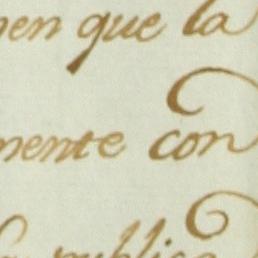 nen que la
mente con
publica